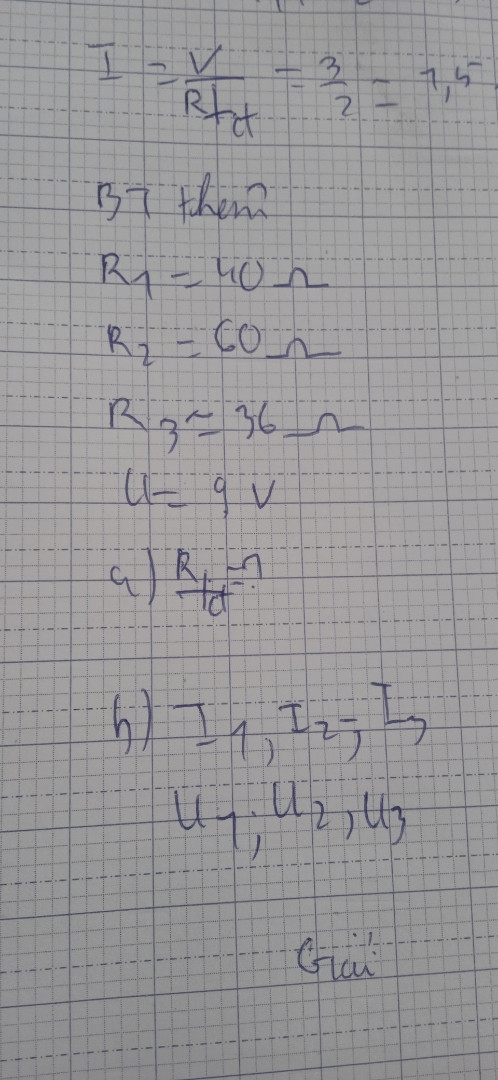 I = V/Rtđ = 3/2 = 1,5
BT thêm
R1 = 40 Ω
R2 = 60 Ω
R3 = 36 Ω
U = 9 V
a) Rtđ = ?
b) I1, I2, I3
U1; U2, U3
Giải